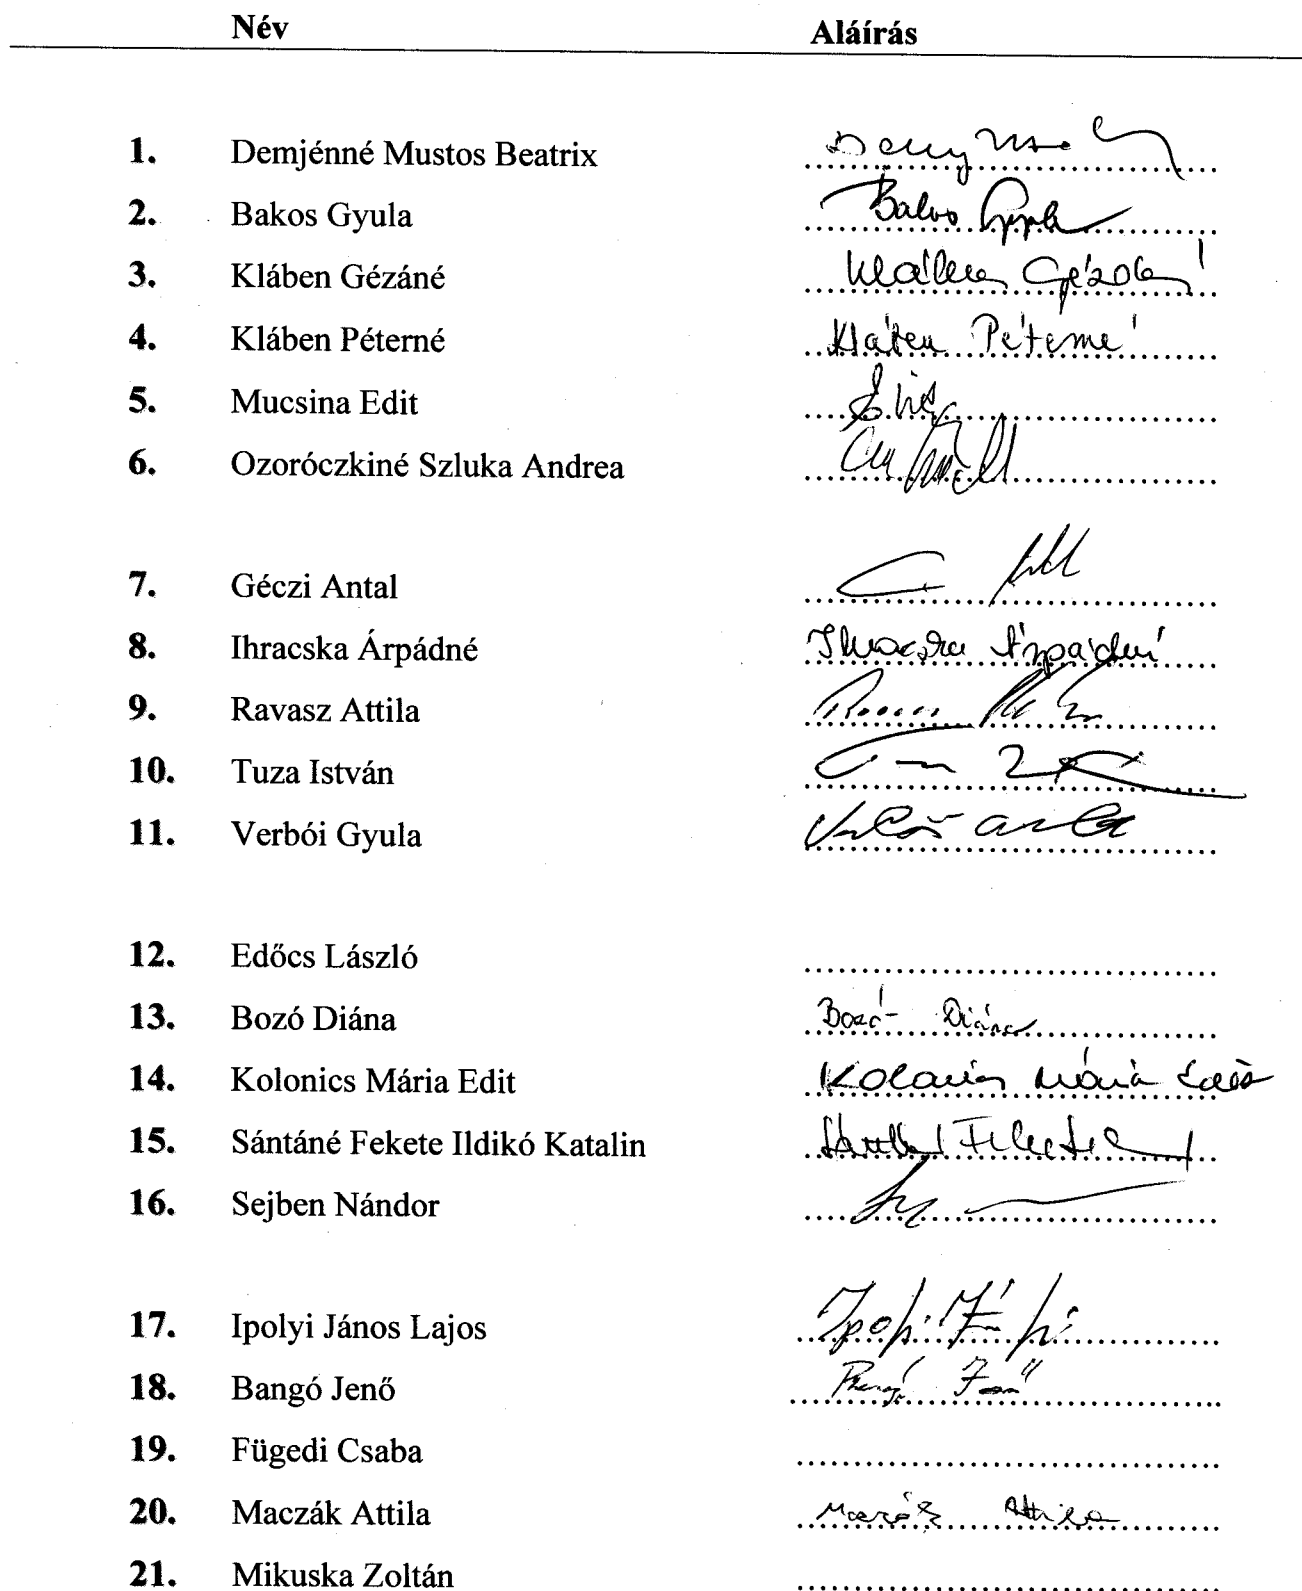 Név Aláírás
1. Demjénné Mustos Beatrix
2. Bakos Gyula Bakos Gyula
3. Kláben Gézáné Kláben Gézáné
4. Kláben Péterné Kláben Péterné
5. Mucsina Edit
6. Ozoróczkiné Szluka Andrea
7. Géczi Antal
8. Ihracska Árpádné Ihracska Árpádné
9. Ravasz Attila
10. Tuza István
11. Verbói Gyula
12. Edőcs László
13. Bozó Diána Bozó Diána
14. Kolonics Mária Edit Kolonics Mária Edit
15. Sántáné Fekete Ildikó Katalin
16. Sejben Nándor
17. Ipolyi János Lajos
18. Bangó Jenő Bangó Jenő
19. Fügedi Csaba
20. Maczák Attila Maczák Attila
21. Mikuska Zoltán